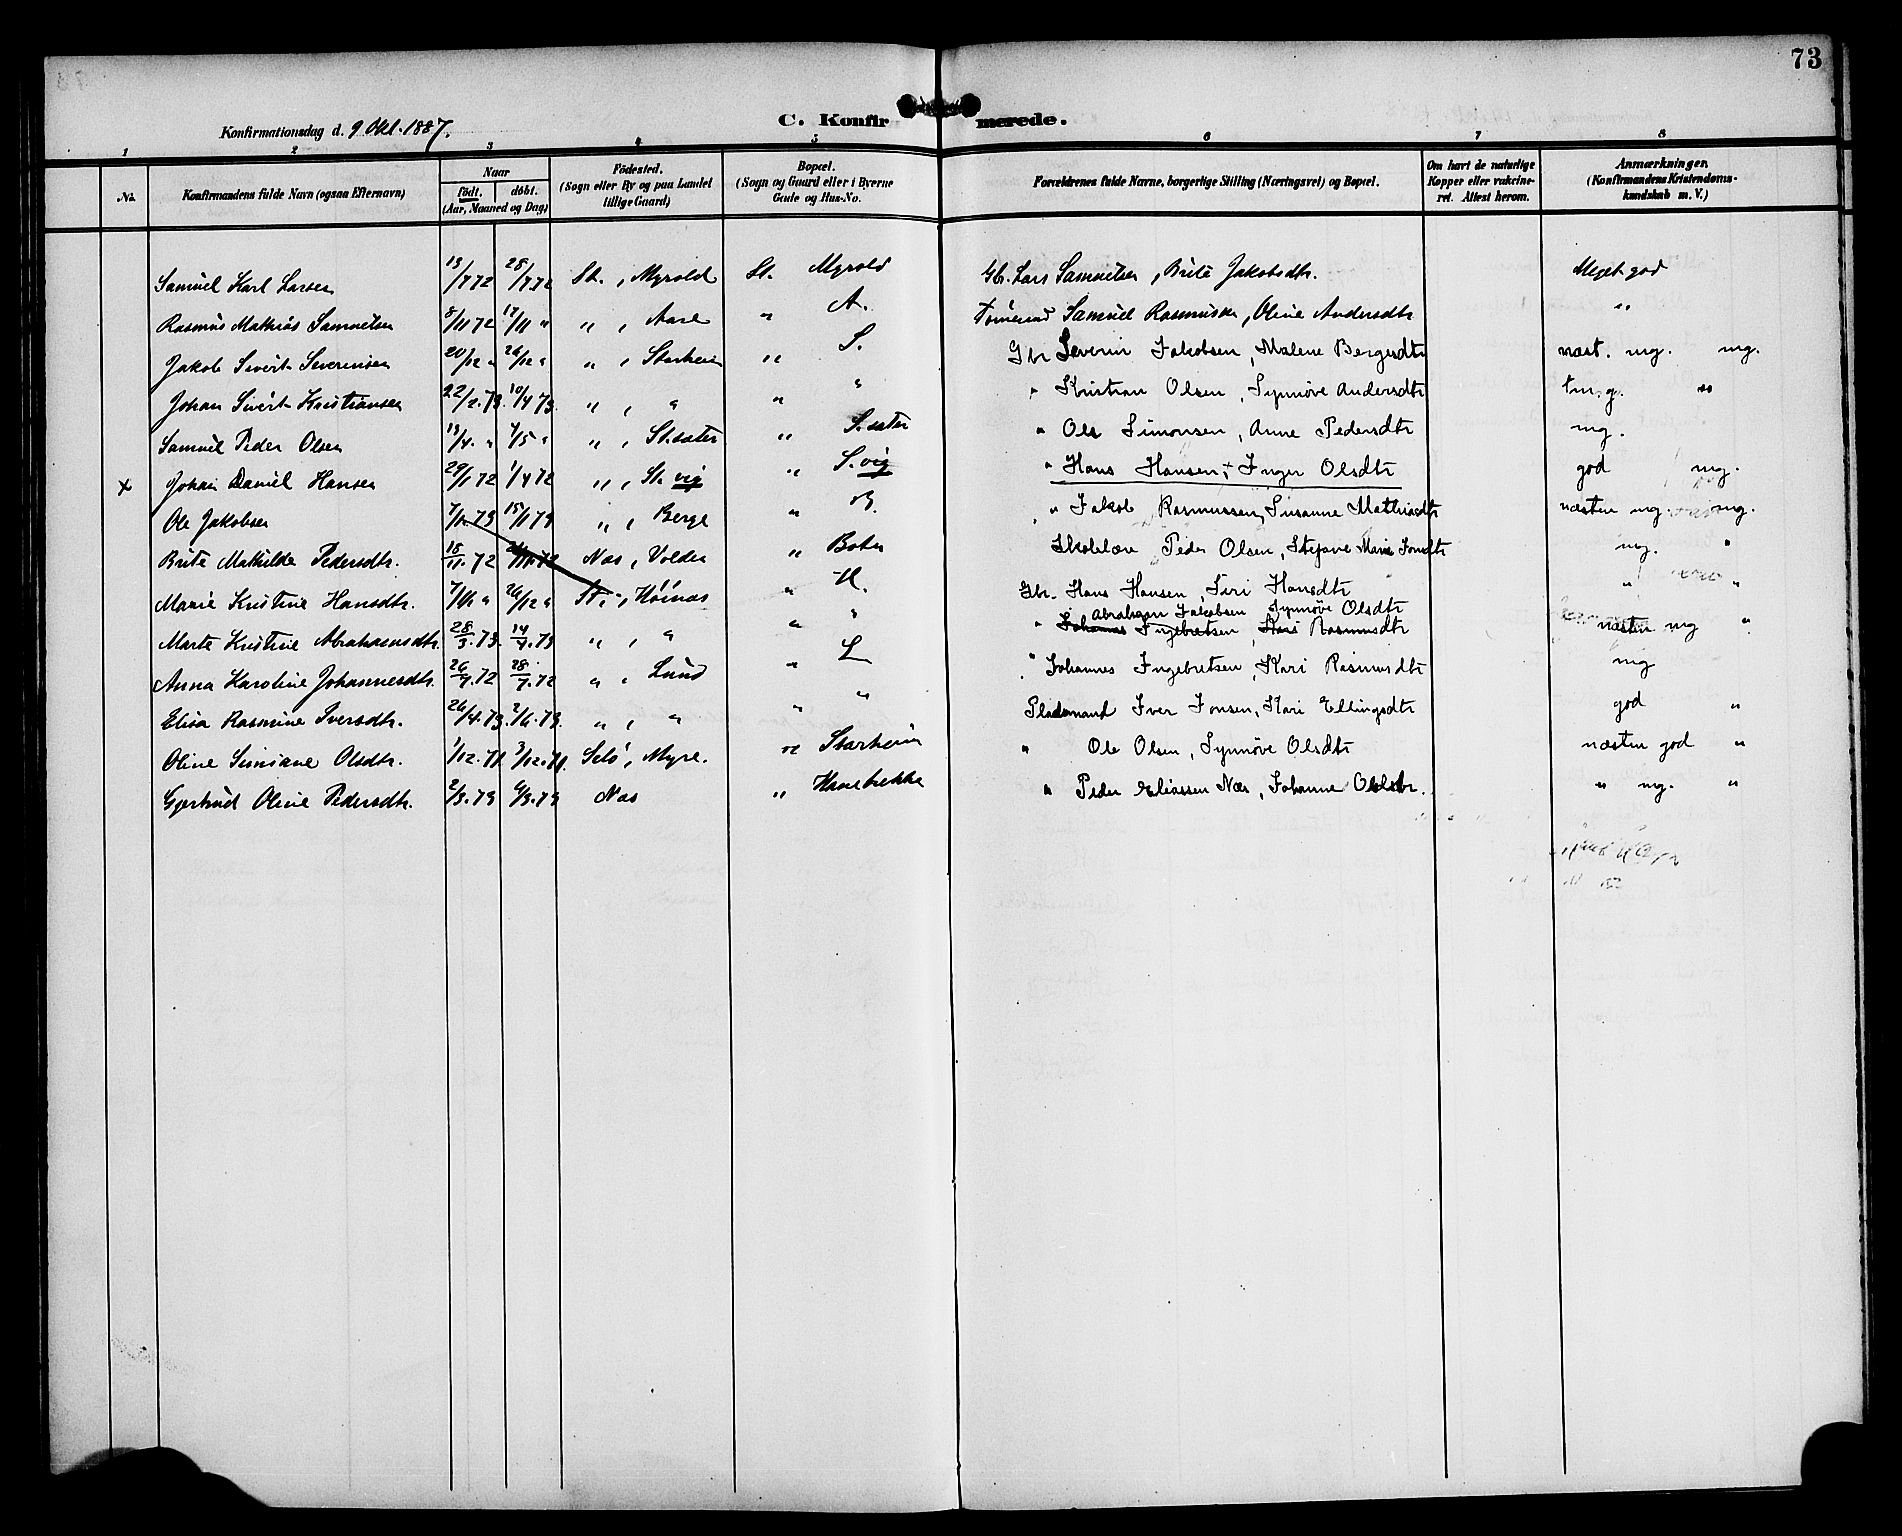 73
Konfirmationsdag d. 9 Okt. 1887.
C. Konfirmerede.
1 2 3 4 5 6 7 8
No. Konfirmandens fulde Navn (ogsaa Efternavn) Naar födt. döbt. (Aar, Maaned og Dag) Födested. (Sogn eller By og paa Landet tillige Gaard) Bopæl. (Sogn og Gaard eller i Byerne Gade og Hus-No. Forældrenes fulde Navne, borgerlige Stilling (Næringsvei) og Bopæl. Om havt de naturlige Kopper eller vakcineret. Attest herom. Anmærkninger. (Konfirmandens Kristendomskundskab m. V.)
Samuel Karl Larsen 13/7 72 28/7 72 St. , Myrold St. Myrold Gb. Lars Samuelsen , Brite Jakobsdtr. Meget god
Rasmus Mathias Samuelsen 8/11 72 17/11 " " , Aase " A. Samuel Rasmussen, Oline Andersdtr "
Jakob Sivert Severinsen 20/12 " 26/12 " " , Starheim " S. Gbr Severin Jakobsen , Malene Bergesdtr næst. mg. mg.
Johan Sivert Kristiansen 22/2. 73. 10/4 73. " , " " " " Kristian Olsen , Synnöve Andersdtr tm.g. "
Samuel Peder Olsen 13/4. " 7/5 " " , St.sæter " S.sæter " Ole Simonsen , Anne Pedersdtr mg.
x Johan Daniel Hansen 29/1 72 1/4 72 " , St. vig " S.vig " Hans Hansen, + Inger Olsdtr god mg.
Ole Jakobsen 7/1. 73 15/1 73 " , Berge " B. " Jakob Rasmussen, Susanne Mathiasdtr næsten mg. mg.
Brite Mathilde Pedersdtr. 18/11. 72 /11. 72 Næs, Volden " Boten Skolelær. Peder Olsen , Stefane Marie Jonsdtr mg. "
Marie Kristine Hansdtr. 7/11 " 26/12 " St. , Höinæs " H. Gbr. Hans Hansen , Siri Hansdtr " "
Abraham Jakobsen Synnöve Olsdtr
Marte Kristine Abrahamsdtr. 28/3. 73. 14/4. 73 " , " " " " Johannes Ingebretsen , Kari Rasmusdtr næsten mg "
Anna Karoline Johannesdtr. 26/7. 72 28/7. 72 " , Lund " L " Johannes Ingebretsen , Kari Rasmusdtr mg
Elisa Rasmine Iversdtr. 26/4. 73. 2/6. 73. " , " " " Pladsmand Iver Jonsen, Kari Ellingsdtr god "
Oline Simiane Olsdtr. 1/12. 71. 3/12. 71. Selö , Myre. " Starheim " Ole Olsen , Synnöve Olsdtr næsten god "
Gjertrud Oline Pedersdtr. 2/3. 73 9/3. 73 Næs " Hanebrekke " Peder Eliassen Næs , Johanne Olsdtr. " mg. "